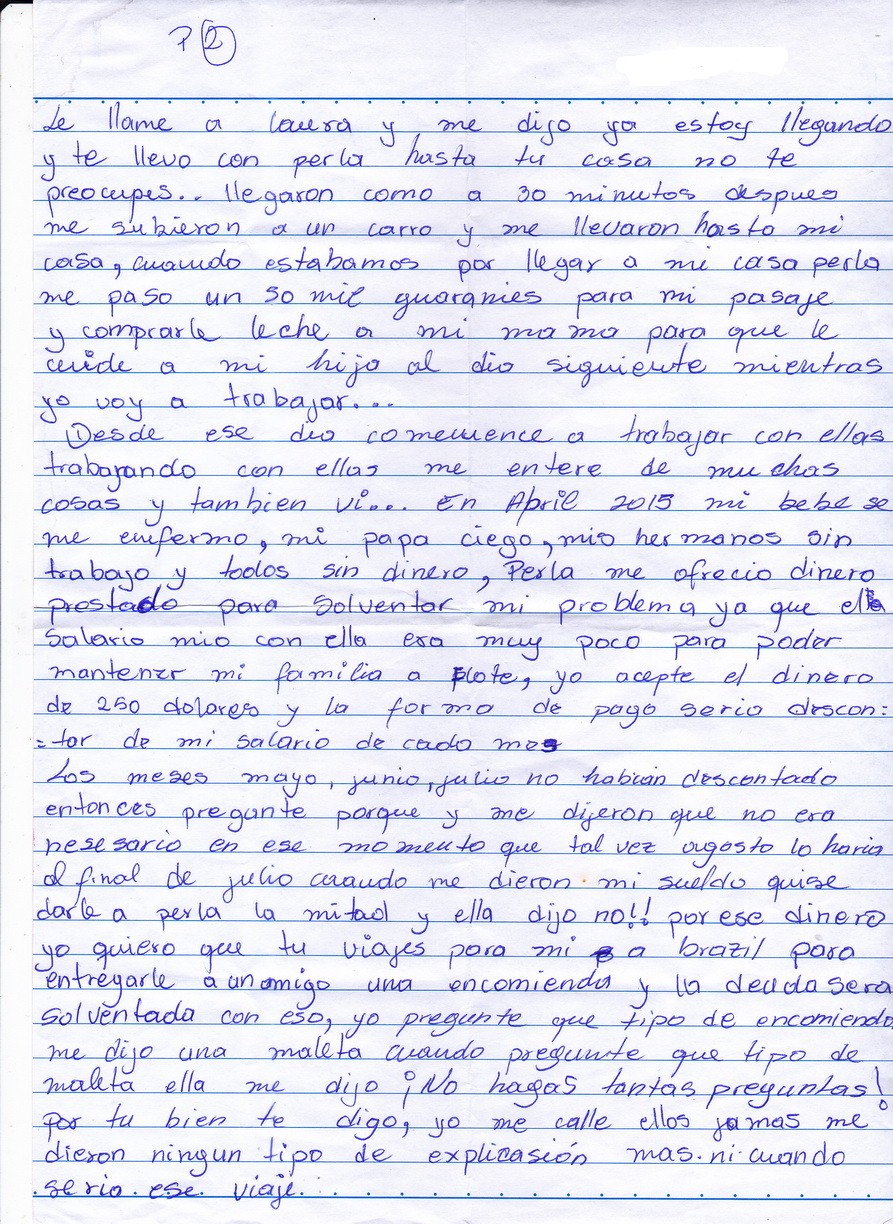 P 2
Le llame a laura y me dijo ya estoy llegando
y te llevo con perla hasta tu casa no te
preocupes.. llegaron como a 30 minutos despues
me subieron a un carro y me llevaron hasta mi
casa, cuando estabamos por llegar a mi casa perla
me paso un 50 mil guaranies para mi pasaje
y comprarle leche a mi mama para que le
cuide a mi hijo al dia siguiente mientras
yo voy a trabajar...
Desde ese dia comence a trabajar con ellas
trabajando con ellas me entere de muchas
cosas y tambien vi... En April 2015 mi bebe se
me enfermo, mi papa ciego, mis hermanos sin
trabajo y todos sin dinero, Perla me ofrecio dinero
prestado para solventar mi problema ya que el
salario mio con ella era muy poco para poder
mantener mi familia a flote, yo acepte el dinero
de 250 dolares y la forma de pago seria descon=
=tar de mi salario de cada mes
Los meses mayo, junio, julio no habian descontado
entonces pregunte porque y me dijeron que no era
nesesario en ese momento que tal vez agosto lo haria
al final de julio cuando me dieron mi sueldo quise
darle a perla la mitad y ella dijo no!! por ese dinero
yo quiero que tu viajes para mi a brazil para
entregarle a un amigo una encomienda y la deuda sera
solventada con eso, yo pregunte que tipo de encomienda
me dijo una maleta cuando pregunte que tipo de
maleta ella me dijo ¡No hagas tantas preguntas!
por tu bien te digo, yo me calle ellos jamas me
dieron ningun tipo de explicasión mas ni cuando
seria ese viaje.